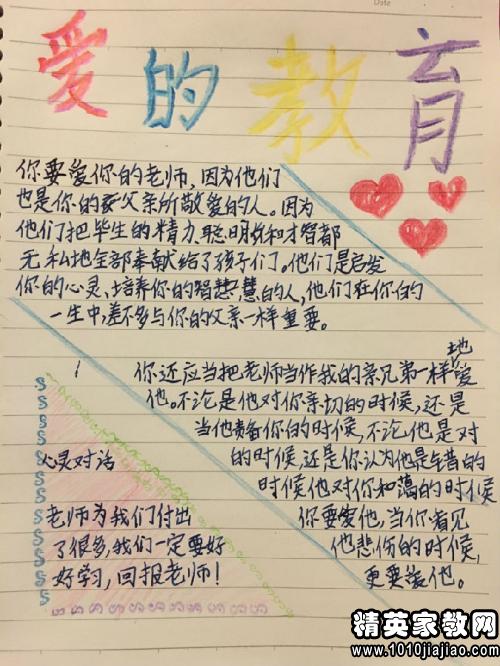 Date
爱的教育
你要爱你的老师,因为他们
也是你的父亲所敬爱的人。因为
他们把毕生的精力、聪明和才智都
无私地全部奉献给了孩子们。他们是启发
你的心灵、培养你的智慧,慧的人,他们在你的
一生中,差不多与你的父亲一样重要。
你还应当把老师当作我的亲兄弟一样地爱
他。不论是他对你亲切的时候,还是
当他责备你的时候,不论他是对
的时候,还是你认为他是错的
时候他对你和蔼的时候
你要爱他,当你看见
他悲伤的时候,
更要爱他。
心灵对话
老师为我们付出
了很多,我们一定要好
好学习,回报老师!
精英家教网
www.1010jiajiao.com